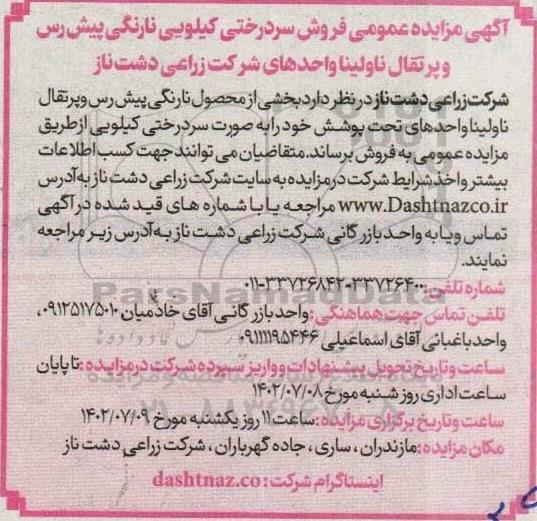 آگهی مزایده عمومی فروش سردرختی کیلویی نارنگی پیش رس
و پرتقال ناولینا واحدهای شرکت زراعی دشت ناز
شرکت زراعی دشت ناز در نظر دارد بخشی از محصول نارنگی پیش رس و پرتقال
ناولینا واحدهای تحت پوشش خود را به صورت سردرختی کیلویی از طریق
مزایده عمومی به فروش برساند. متقاضیان می توانند جهت کسب اطلاعات
بیشتر و اخذ شرایط شرکت در مزایده به سایت شرکت زراعی دشت ناز به آدرس
www.Dashtnazco.ir مراجعه یا با شماره های قید شده در آگهی
تماس و یا به واحد بازرگانی شرکت زراعی دشت ناز به آدرس زیر مراجعه
نمایند.
شماره تلفن: ۳۳۷۲۶۴۰۰-۳۳۷۲۶۸۴۲-۰۱۱
تلفن تماس جهت هماهنگی: واحد بازرگانی آقای خادمیان ۰۹۱۲۵۱۷۵۰۱۰،
واحد باغبانی آقای اسماعیلی ۰۹۱۱۱۱۹۵۴۴۶
ساعت و تاریخ تحویل پیشنهادات و واریز سپرده شرکت در مزایده: تا پایان
ساعت اداری روز شنبه مورخ ۱۴۰۲/۰۷/۰۸
ساعت و تاریخ برگزاری مزایده: ساعت ۱۱ روز یکشنبه مورخ ۱۴۰۲/۰۷/۰۹
مکان مزایده: مازندران، ساری، جاده گهرباران، شرکت زراعی دشت ناز
اینستاگرام شرکت: dashtnaz.co
ParsNamadData